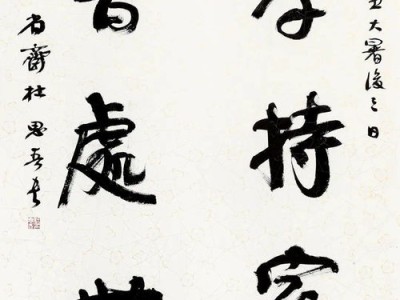 大暑後三日
孝持家
書處世
齋杜思吾書